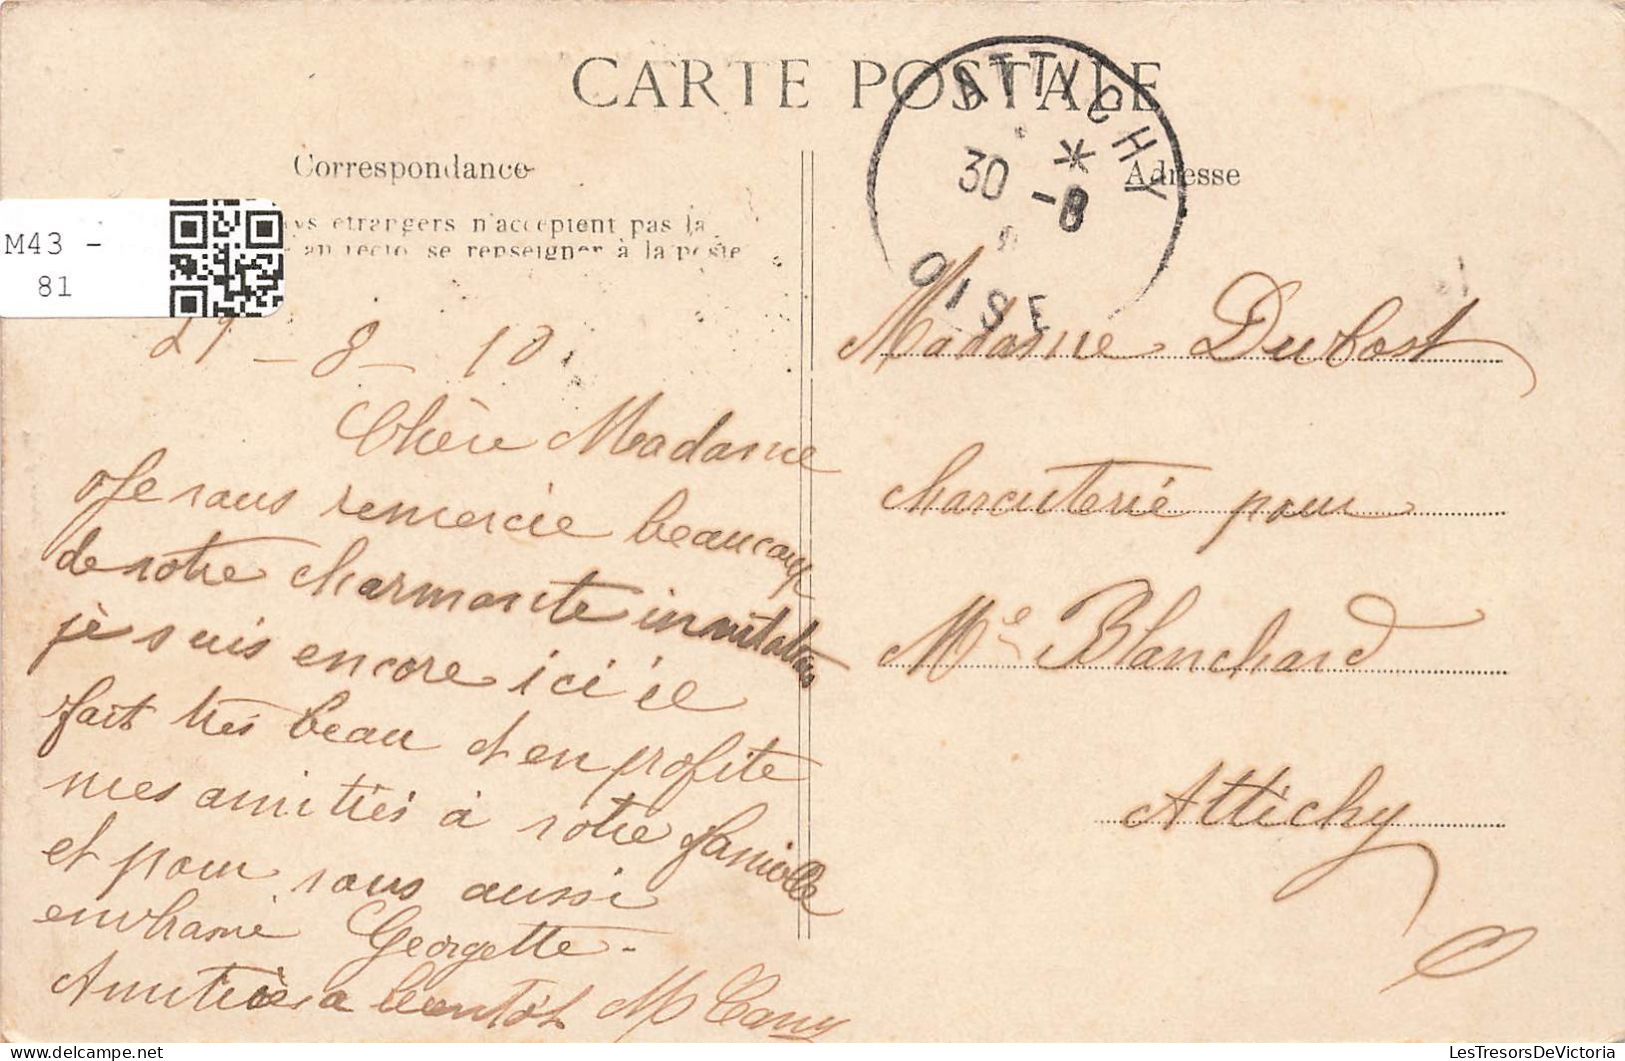 CARTE POSTALE
ATTICHY
30 -8
OISE
Correspondance
Adresse
ys étrangers n'acceptent pas la
au recto, se renseigner à la poste
M43 -
81
29 - 8 - 10.
Chère Madame
Je vous remercie beaucoup
de votre charmante invitation
je suis encore ici il
fait très beau et en profite
mes amitiés à votre famille
et pour vous aussi
Georgette -
Amitiés a bientôt M
Madame Dubost
charcuterié pour
Me Blanchard
Attichy
LesTresorsDeVictoria